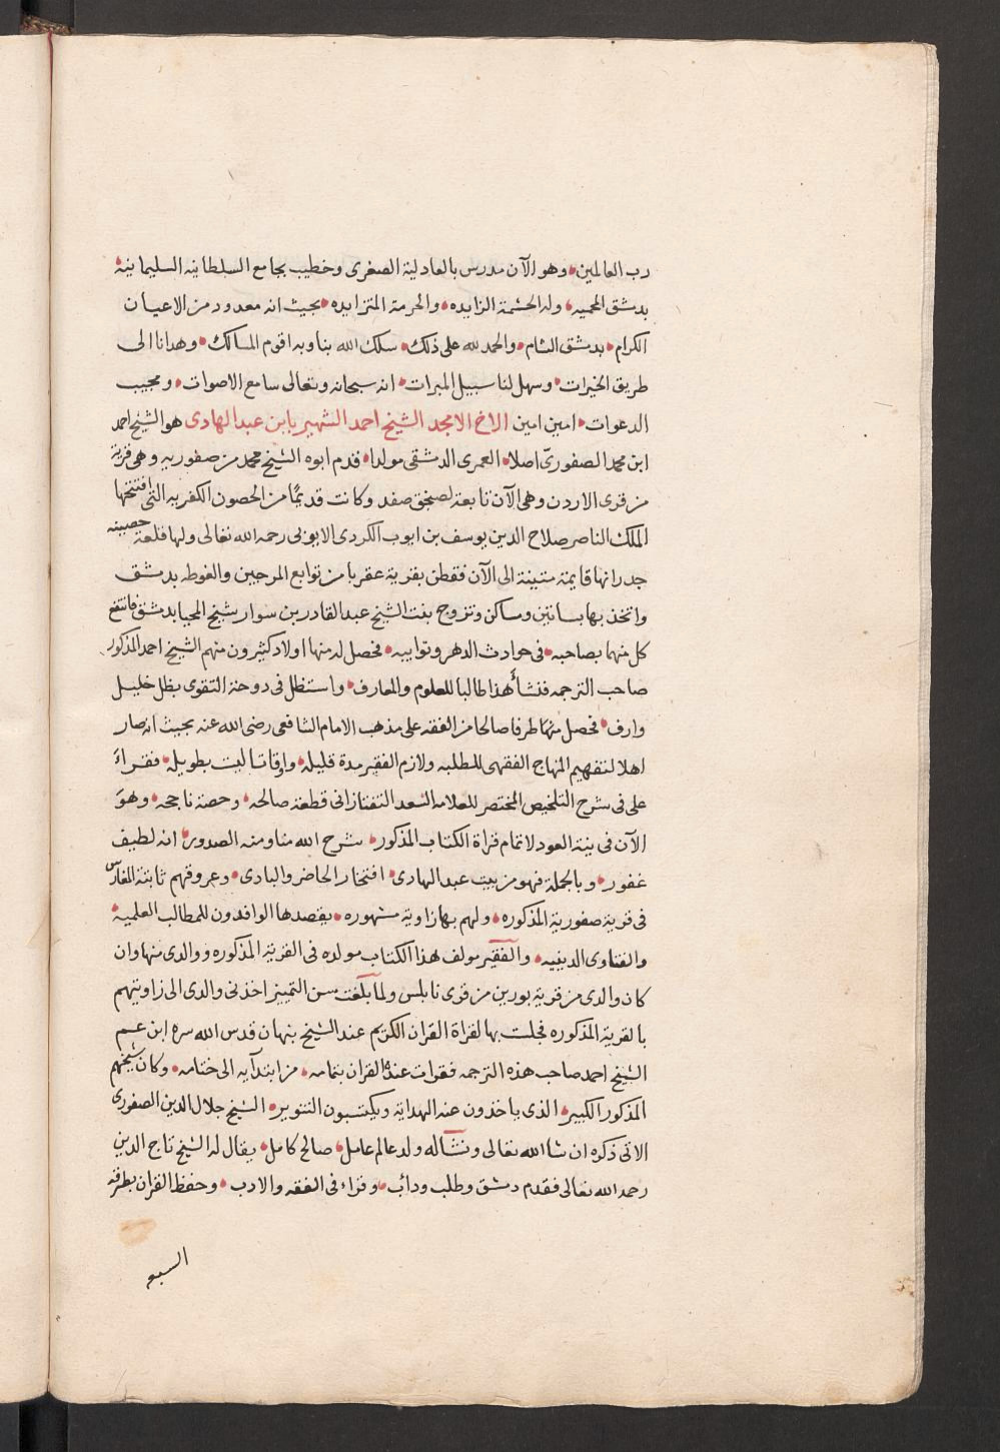 رب العالمين • وهو الآن مدرس بالعادلية الصغرى وخطيب بجامع السلطانيه السليمانيه •
بدمشق المحميه • وله الحشمة الزايده • والحرمة المتزايده • بحيث انه معدود من الاعيان
الكرام • بدمشق الشام • والحمد لله على ذلك • سلك الله بنا وبه اقوم المسالك • وهدانا الى
طريق الخيرات • وسهل لنا سبيل المبرات • انه سبحانه وتعالى سامع الاصوات • ومجيب
الدعوات • امين امين الاخ الامجد الشيخ احمد الشهير بابن عبد الهادى هو الشيخ احمد
ابن محمد الصفورى اصلا • العمرى الدمشقى مولدا • قدم ابوه الشيخ محمد من صفوريه وهى قرية
من قرى الاردن وهى الآن تابعة لصنجق صفد وكانت قديمًا من الحصون الكفريه التى افتتحها
الملك الناصر صلاح الدين يوسف بن ايوب الكردى الايوبى رحمه الله تعالى ولها قلعة حصينه
جدرانها قايمة متينة الى الآن فقطن بقرية عقربا من توابع المرجين والغوطه بدمشق
واتخذ بها بساتين ومساكن وتزوج بنت الشيخ عبد القادر بن سوار شيخ المحيا بدمشق فانتفع
كل منهما بصاحبه • فى حوادث الدهر ونوايبه • فحصل له منها اولاد كثيرون منهم الشيخ احمد المذكور
صاحب الترجمه فنشأ هذا طالبا للعلوم والمعارف • واستظل فى دوحة التقوى بظل خليل
وارف • فحصل منها طرفا صالحا من الفقه على مذهب الامام الشافعى رضى الله عنه بحيث انه صار
اهلا لتفهيم المنهاج الفقهى للطلبه ولازم الفقير مدة قليله • واوقاتا ليت بطويله • فقراء
على فى شرح التلخيص المختصر للعلامه السعد التفتازانى قطعة صالحه • وحصة ناجحه • وهو
الآن فى نية العود لاتمام قراة الكتاب المذكور • شرح الله منا ومنه الصدور • انه لطيف
غفور • وبالجملة فهو من بيت عبد الهادى • افتخار الحاضر والبادى • وعروقهم ثابتة المغارس
فى قرية صفورية المذكوره • ولهم بها زاوية مشهوره • يقصدها الوافدون للمطالب العلميه •
والفتاوى الدينيه • والفقير مولف هذا الكتاب مولده فى القرية المذكوره ووالدى منها وان
كان والدى من قرية بورين من قرى نابلس ولما بلغت سن التمييز اخذنى والدى الى زاويتهم
بالقرية المذكوره فجلست بها لقراة القران الكريم عند الشيخ بنهان قدس الله سره ابن عم
الشيخ احمد صاحب هذه الترجمه فقرات عنده القران بتمامه • من ابتدآيه الى ختامه • وكان شيخهم
المذكور الكبير • الذى ياخذون عنه الهداية ويكتسبون التنوير • الشيخ جلال الدين الصفورى
الاتى ذكره ان شا الله تعالى ونشأ له ولد عالم عامل • صالح كامل • يقال له الشيخ تاج الدين
رحمه الله تعالى فقدم دمشق وطلب ودائب • وقراء فى الفقه والادب • وحفظ القران بطرقه
السبع